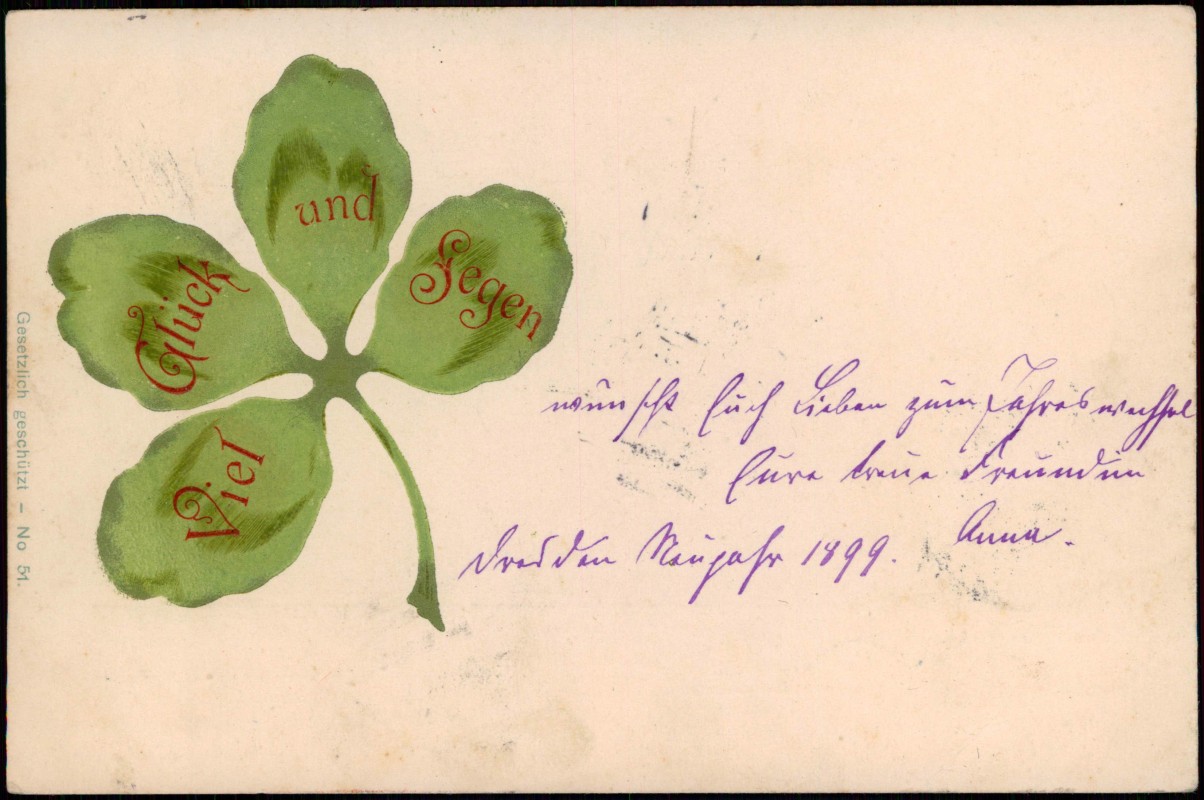 Viel
Glück
und
Segen
wünscht Euch Lieben zum Jahreswechsel
Eure treue Freundin
Anna.
Dresden Neujahr 1899.
Gesetzlich geschützt – No 51.